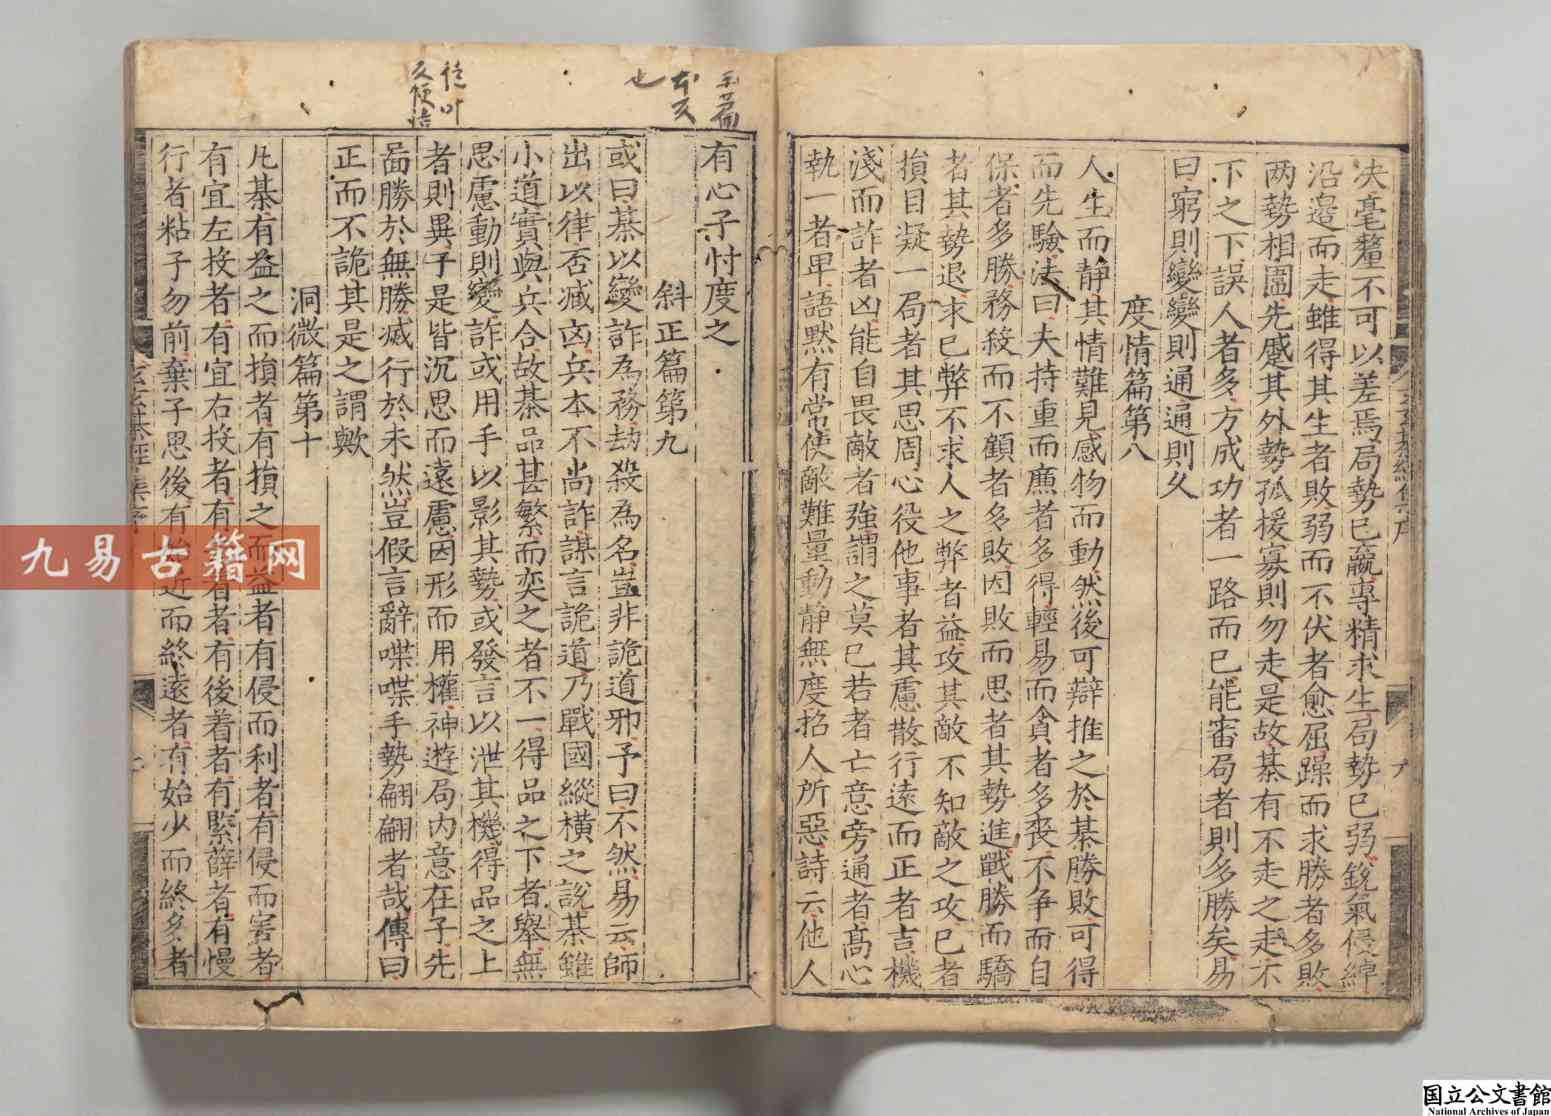 决毫釐不可以差焉局勢已羸專精求生局勢已弱銳氣侵綽
沿邉而走雖得其生者敗弱而不伏者愈屈躁而求勝者多敗
两勢相圍先蹙其外勢孤援寡則勿走是故棊有不走之走不
下之下誤人者多方成功者一路而已能審局者則多勝矣易
曰窮則變變則通通則久
度情篇第八
人生而静其情難見感物而動然後可辯推之於棊勝敗可得
而先驗法曰夫持重而廉者多得輕易而貪者多丧不争而自
保者多勝務殺而不顧者多敗因敗而思者其勢進戰勝而驕
者其勢退求已弊不求人之弊者益攻其敵不知敵之攻已者
損目凝一局者其思周心役他事者其慮散行逺而正者吉機
淺而詐者凶能自畏敵者强謂之莫已若者亡意旁通者髙心
執一者卑語黙有常使敵難量動静無度招人所惡詩云他人
有心予忖度之
斜正篇第九
或曰棊以變詐為務劫殺為名豈非詭道邪予曰不然易云師
出以律否滅凶兵本不尚詐謀言詭道乃戰國縱横之說棊雖
小道實與兵合故棊品甚繁而奕之者不一得品之下者舉無
思慮動則變詐或用手以影其勢或發言以泄其機得品之上
者則異于是皆沉思而遠慮因形而用權神遊局内意在子先
啚勝於無勝滅行於未然豈假言辭喋喋手勢翩翩者哉傳曰
正而不詭其是之謂歟
洞微篇第十
凢棊有益之而損者有損之而益者有侵而利者有侵而害者
有宜左投者有宜右投者有先着者有後着者有緊辟者有慢
行者粘子勿前棄子思後有始近而終遠者有始少而終多者
玉篇
本文
也
九易古籍网
国立公文書館
National Archives of Japan